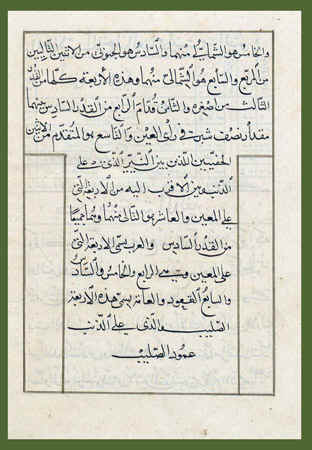 والخامس هو الشمالي منهما والسادس هو الجنوبي من الاثنين التاليين
من المربع والسابع هو الشمالي منهما وهذه الأربعة كلها من القدر
الثالث من اصغره والثامن قدام الرابع من القدر السادس بينهما
مقدار نصف شبر في رأي العين والتاسع هو المتقدم من الاثنين
الخفيين اللذين بين النير الذي على
الذنب وبين الاقرب اليه من الاربعة التي
على المعين والعاشر هو التالي منهما وهما جميعا
من القدر السادس والعرب تسمي الاربعة التي
على المعين وهي الرابع والخامس والسادس
والسابع القعود والعامة يسمي هذه الاربعة
الصليب والذي على الذنب
عمود الصليب